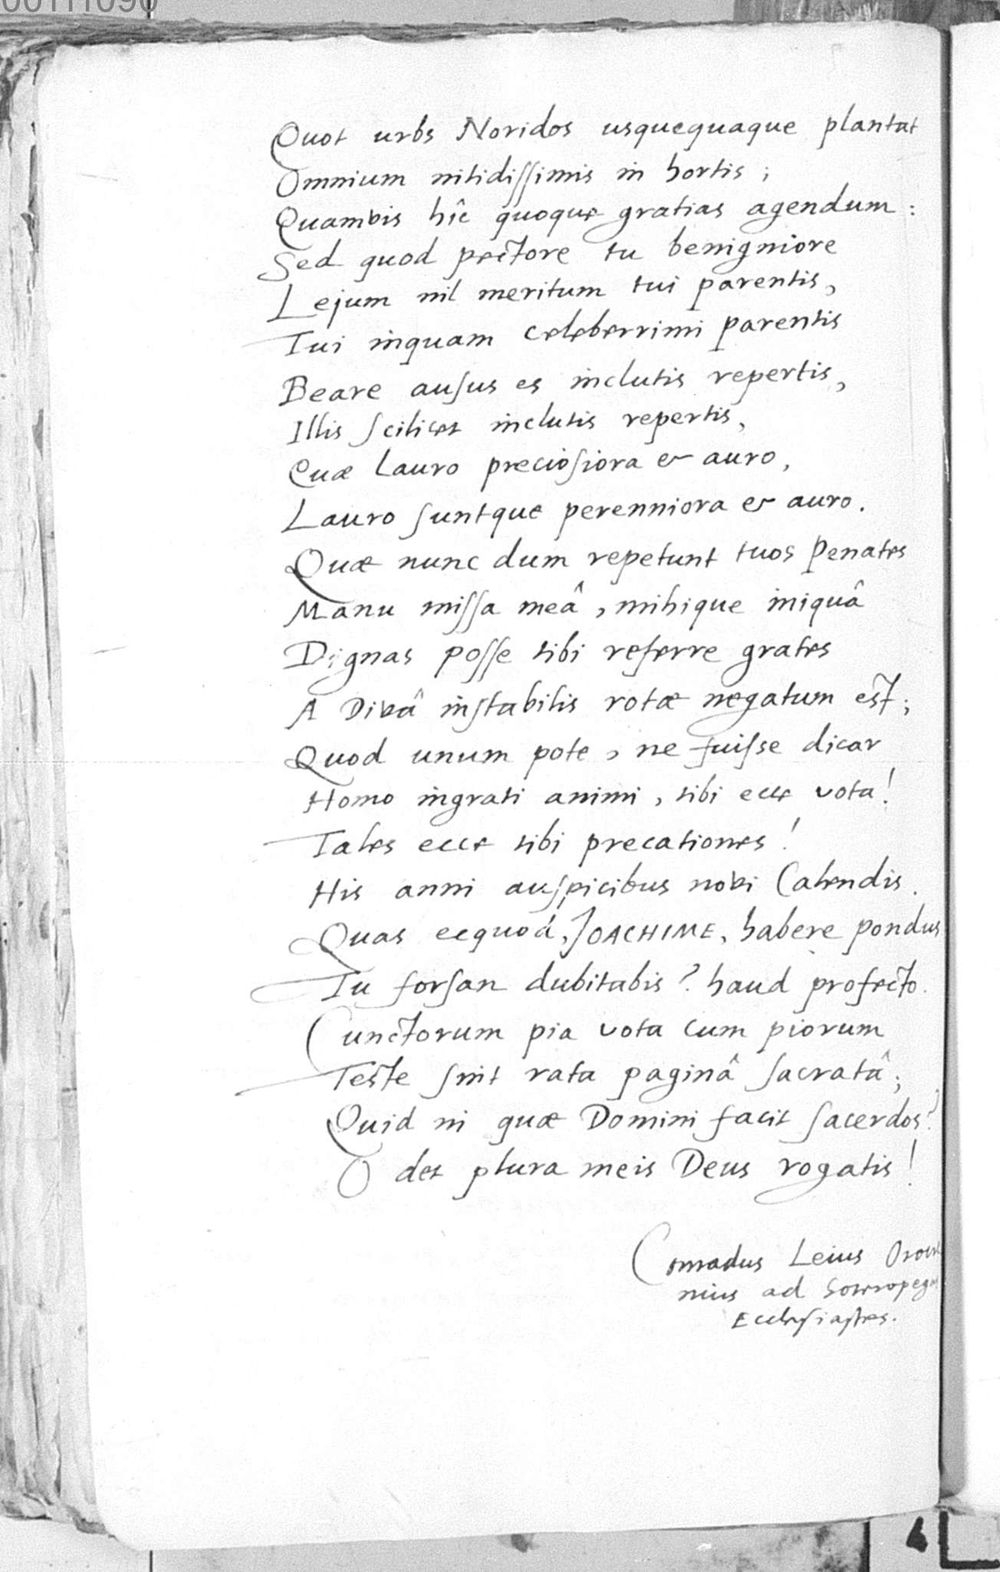 00111090
Quot urbs Noridos usquequaque plantat
Omnium nitidissimis in hortis;
Quamvis hîc quoque gratias agendum:
Sed quod pectore tu benigniore
Lejum nil meritum tui parentis,
Tui inquam celeberrimi parentis
Beare ausus es inclutis repertis,
Illis scilicet inclutis repertis,
Quæ lauro preciosiora & auro,
Lauro suntque perenniora & auro.
Quæ nunc dum repetunt tuos Penates
Manu missa meâ, mihique iniquâ
Dignas posse tibi referre grates
A Divâ instabilis rotæ negatum est;
Quod unum pote, ne fuisse dicar
Homo ingrati animi, tibi ecce vota!
Tales ecce tibi precationes!
His anni auspicibus novi Calendis.
Quas ecquod, JOACHIME, habere pondus
Tu forsan dubitabis? haud profecto.
Cunctorum pia vota cum piorum
Teste sint rata paginâ sacratâ;
Quid ni quæ Domini facit sacerdos?
O det plura meis Deus rogatis!
Conradus Leius
nius ad
Ecclesiastes.